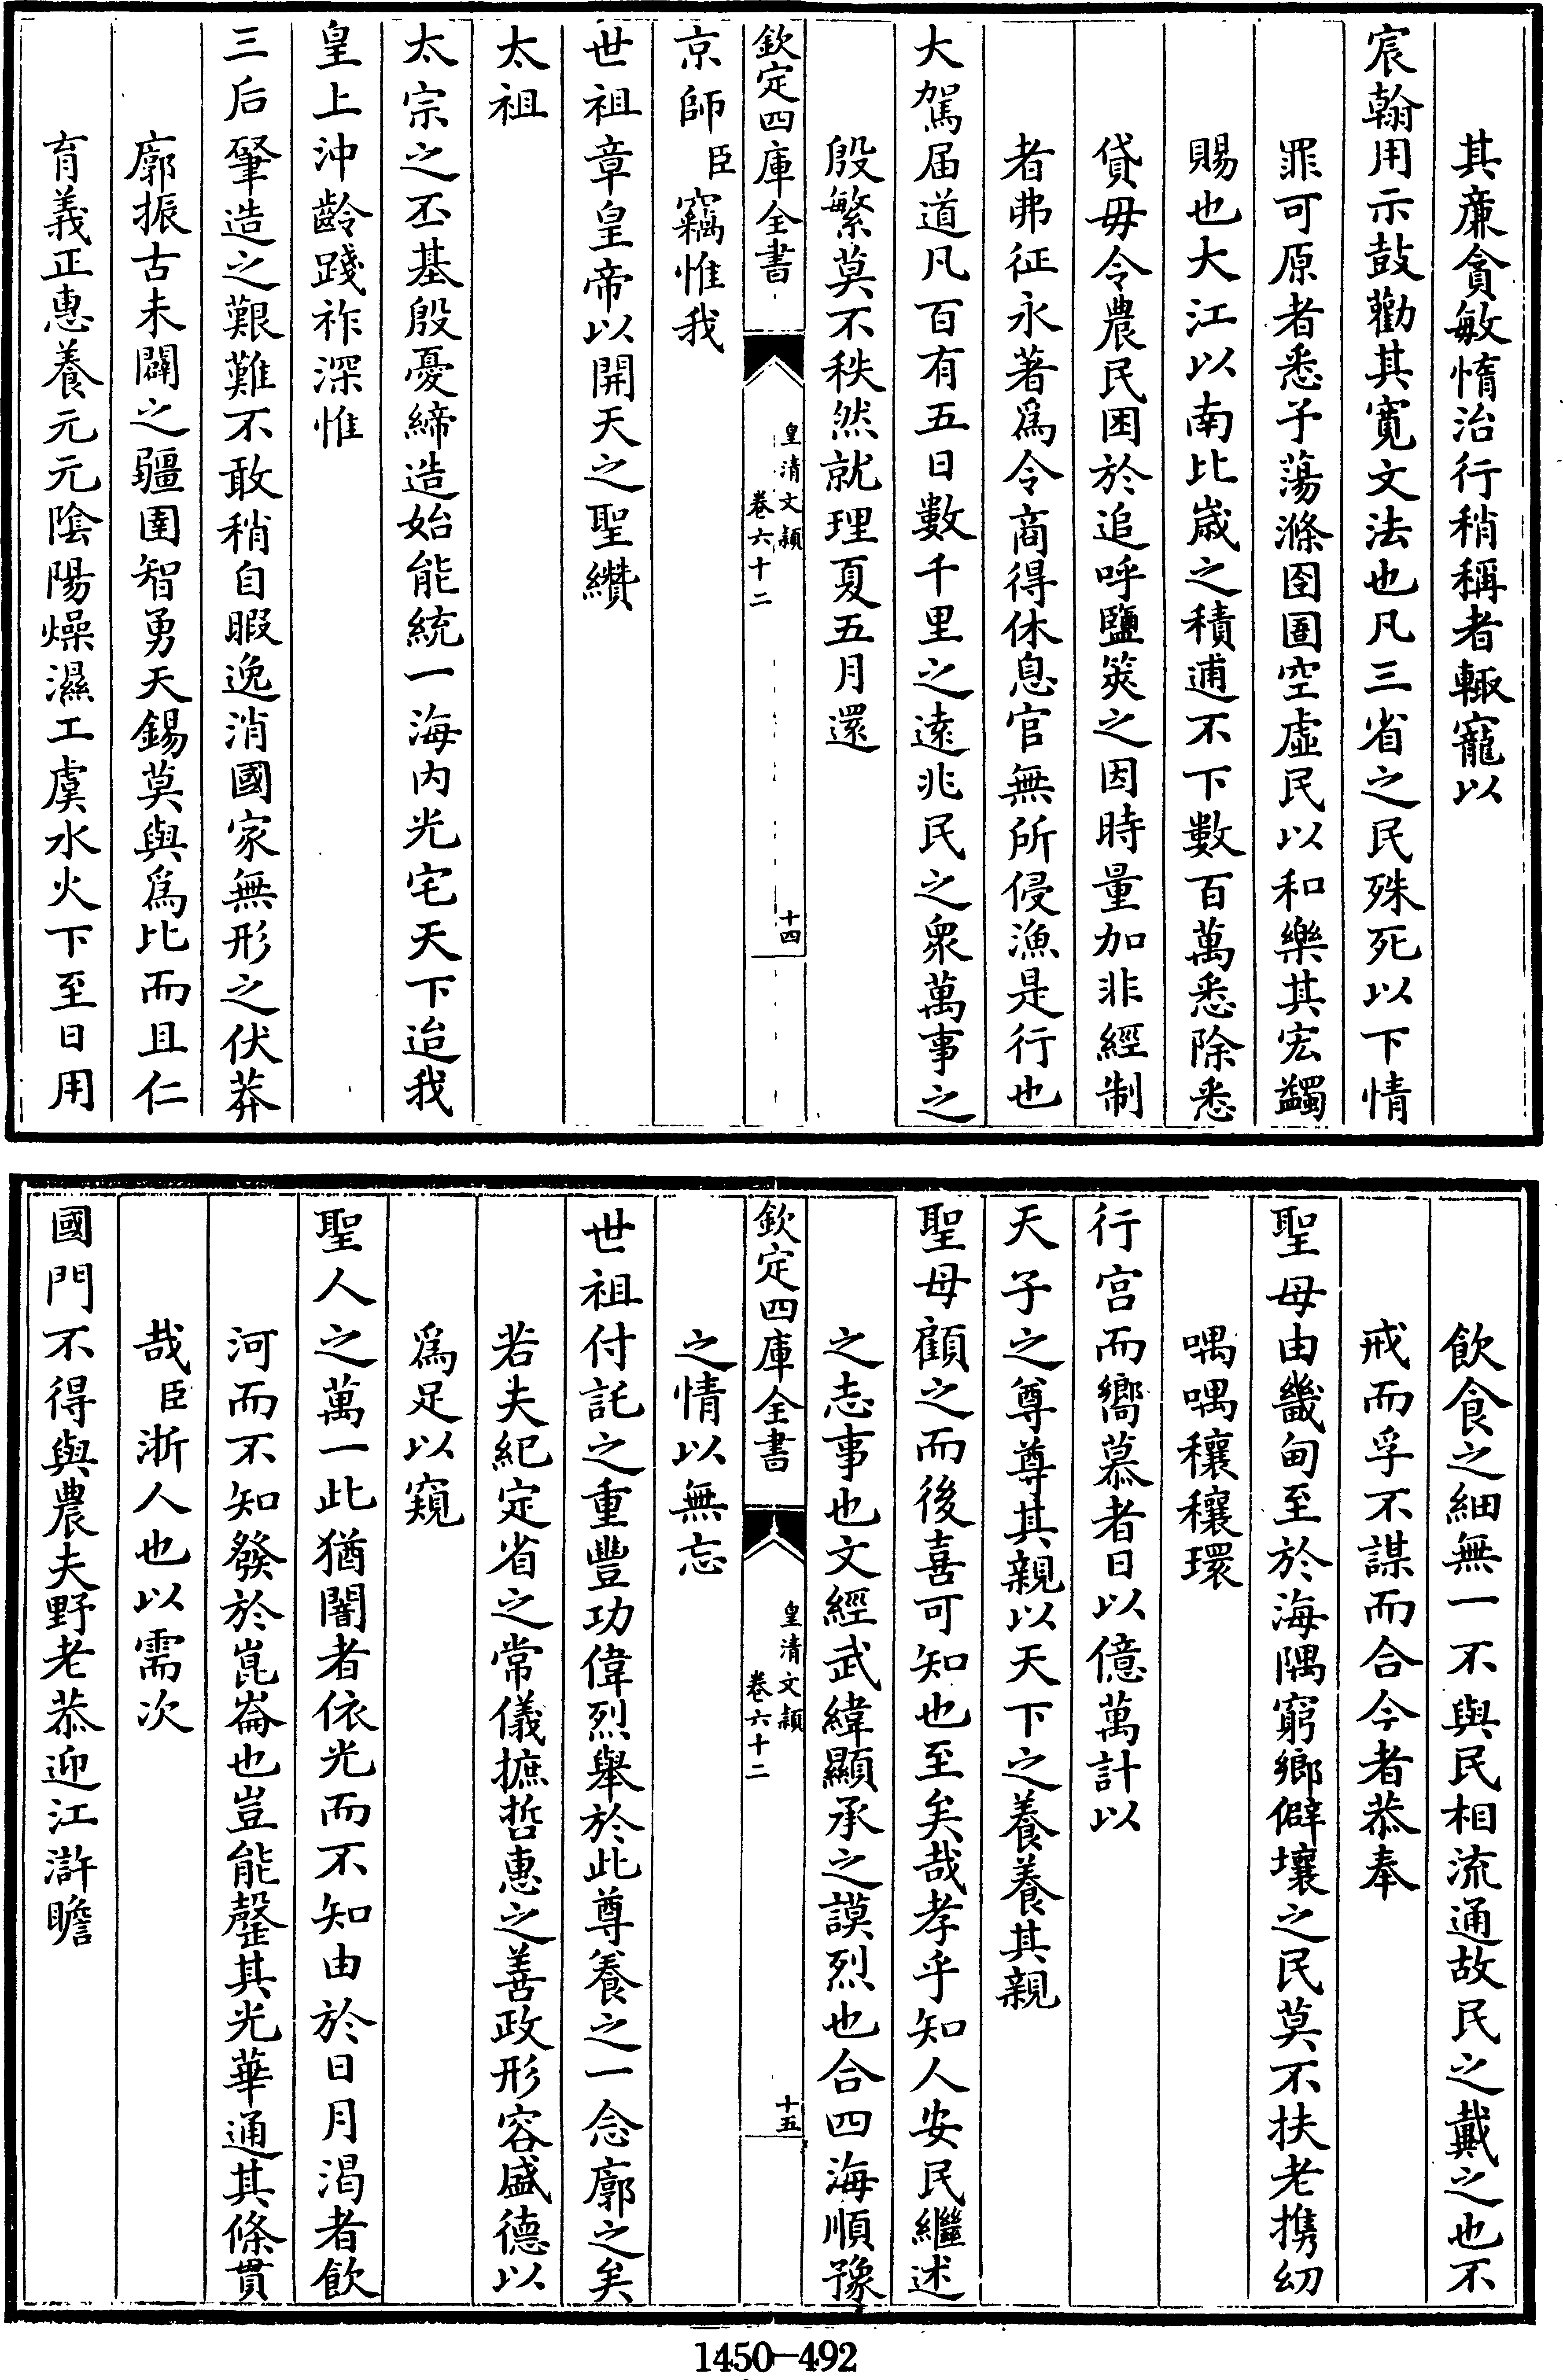 其廉貪敏惰治行稍稱者輙寵以
宸翰用示鼓勸其寛文法也凡三省之民殊死以下情
罪可原者悉予蕩滌囹圄空虛民以和樂其宏蠲
賜也大江以南比歳之積逋不下數百萬悉除悉
貸毋令農民困於追呼鹽筴之因時量加非經制
者弗征永著爲令商得休息官無所侵漁是行也
大駕届道凡百有五日數千里之逺兆民之衆萬事之
殷繁莫不秩然就理夏五月還
欽定四庫全書
皇清文頴
卷六十二
十四
京師臣竊惟我
世祖章皇帝以開天之聖纘
太祖
太宗之丕基殷憂締造始能統一海内光宅天下迨我
皇上沖齡踐祚深惟
三后肇造之艱難不敢稍自暇逸消國家無形之伏莽
廓振古未闢之疆圉智勇天錫莫與爲比而且仁
育義正惠養元元陰陽燥濕工虞水火下至日用
飲食之細無一不與民相流通故民之戴之也不
戒而孚不謀而合今者恭奉
聖母由畿甸至於海隅窮鄉僻壤之民莫不扶老携幼
喁喁穰穰環
行宫而嚮慕者日以億萬計以
天子之尊尊其親以天下之養養其親
聖母顧之而後喜可知也至矣哉孝乎知人安民繼述
之志事也文經武緯顯承之謨烈也合四海順豫
欽定四庫全書
皇清文頴
卷六十二
十五
之情以無忘
世祖付託之重豐功偉烈舉於此尊養之一念廓之矣
若夫紀定省之常儀摭哲惠之善政形容盛德以
爲足以窺
聖人之萬一此猶闇者依光而不知由於日月渴者飲
河而不知發於崑崙也豈能罄其光華通其條貫
哉臣浙人也以需次
國門不得與農夫野老恭迎江滸瞻
1450—492